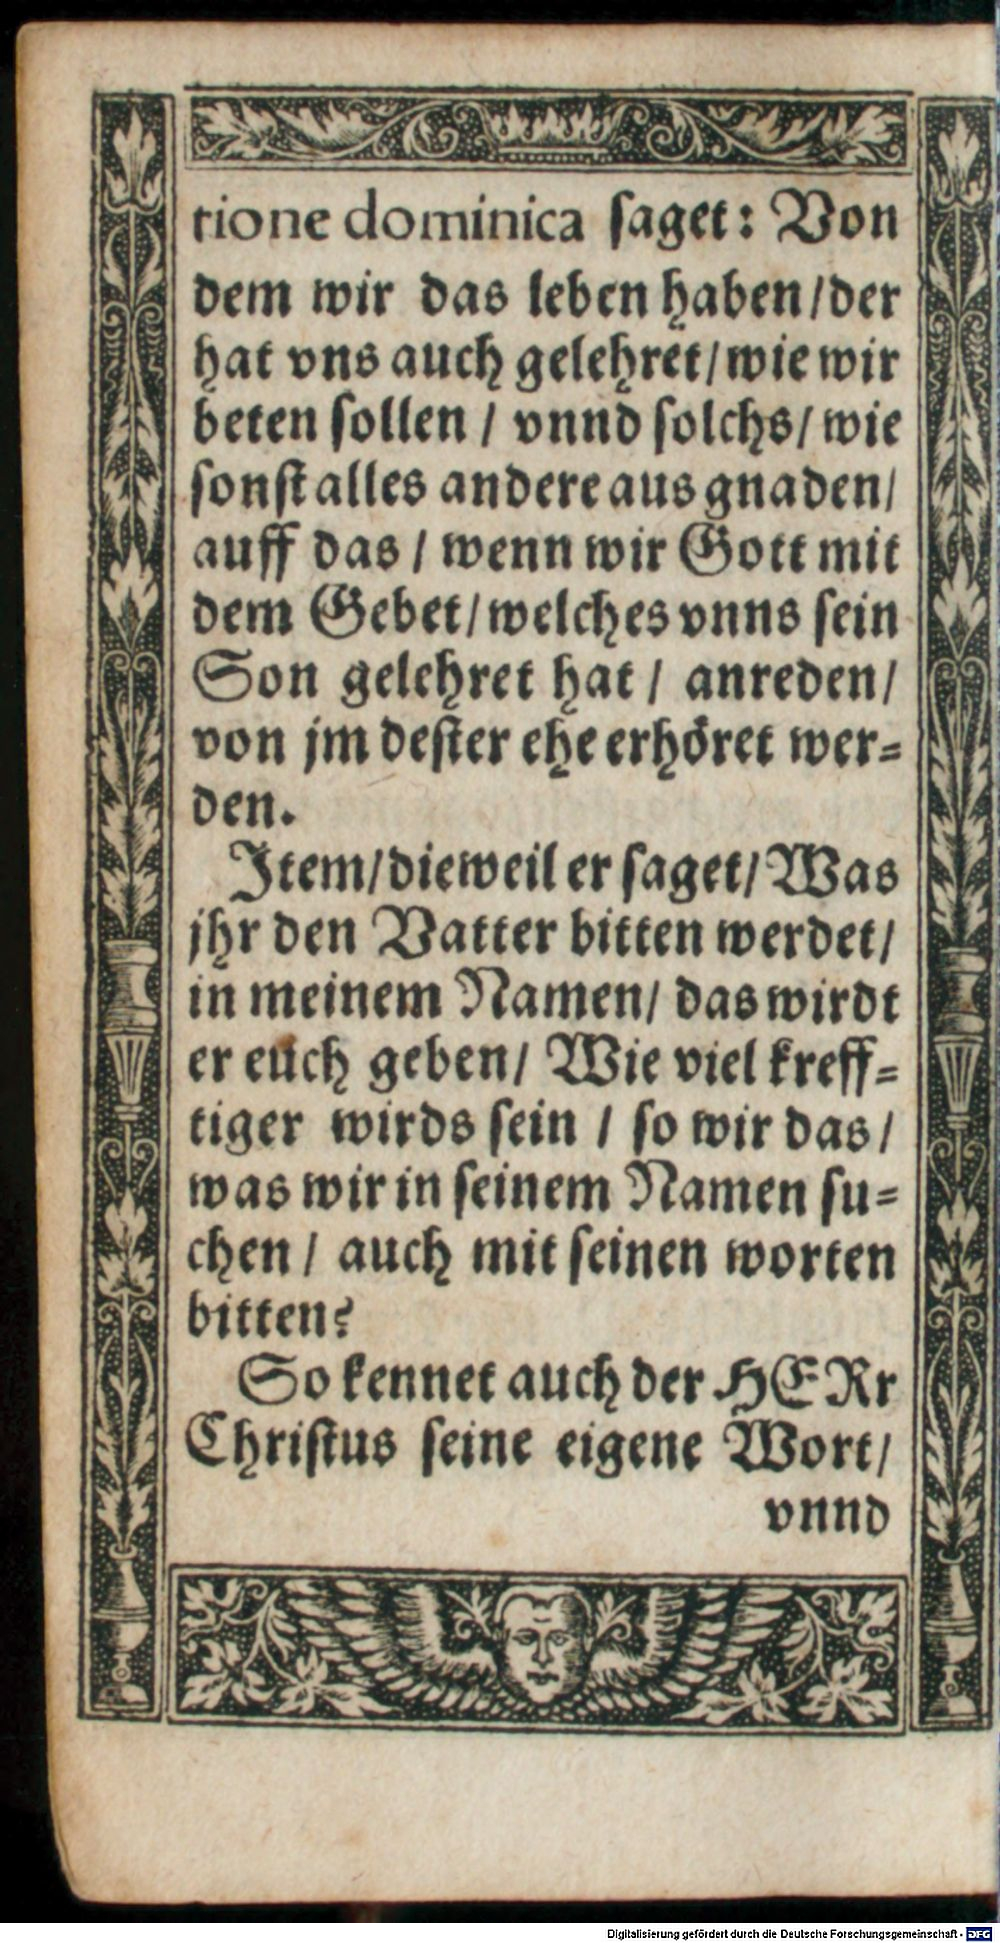 tione dominica ſaget: Von
dem wir das leben haben/der
hat vns auch gelehret/wie wir
beten ſollen / vnnd ſolchs/ wie
ſonſt alles andere aus gnaden/
auff das / wenn wir Gott mit
dem Gebet/welches vnns ſein
Son gelehret hat / anreden/
von jm deſter ehe erhöret wer-
den.
Item/dieweil er ſaget/Was
jhr den Vatter bitten werdet/
in meinem Namen/ das wirdt
er euch geben/ Wie viel kreff-
tiger wirds ſein / ſo wir das/
was wir in ſeinem Namen ſu-
chen / auch mit ſeinen worten
bitten?
So kennet auch der HERr
Chriſtus ſeine eigene Wort/
vnnd
Digitalisierung gefördert durch die Deutsche Forschungsgemeinschaft - DFG